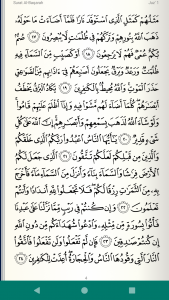 Surah Al-Baqarah Juz' 1
مَثَلُهُمْ كَمَثَلِ ٱلَّذِى ٱسْتَوْقَدَ نَارًا فَلَمَّآ أَضَآءَتْ مَا حَوْلَهُۥ
ذَهَبَ ٱللَّهُ بِنُورِهِمْ وَتَرَكَهُمْ فِى ظُلُمَٰتٍ لَّا يُبْصِرُونَ ١٧
صُمٌّۢ بُكْمٌ عُمْىٌ فَهُمْ لَا يَرْجِعُونَ ١٨ أَوْ كَصَيِّبٍ مِّنَ ٱلسَّمَآءِ فِيهِ
ظُلُمَٰتٌ وَرَعْدٌ وَبَرْقٌ يَجْعَلُونَ أَصَٰبِعَهُمْ فِىٓ ءَاذَانِهِم مِّنَ ٱلصَّوَٰعِقِ
حَذَرَ ٱلْمَوْتِ وَٱللَّهُ مُحِيطٌۢ بِٱلْكَٰفِرِينَ ١٩ يَكَادُ ٱلْبَرْقُ يَخْطَفُ
أَبْصَٰرَهُمْ كُلَّمَآ أَضَآءَ لَهُم مَّشَوْا۟ فِيهِ وَإِذَآ أَظْلَمَ عَلَيْهِمْ قَامُوا۟
وَلَوْ شَآءَ ٱللَّهُ لَذَهَبَ بِسَمْعِهِمْ وَأَبْصَٰرِهِمْ إِنَّ ٱللَّهَ عَلَىٰ كُلِّ
شَىْءٍ قَدِيرٌ ٢٠ يَٰٓأَيُّهَا ٱلنَّاسُ ٱعْبُدُوا۟ رَبَّكُمُ ٱلَّذِى خَلَقَكُمْ
وَٱلَّذِينَ مِن قَبْلِكُمْ لَعَلَّكُمْ تَتَّقُونَ ٢١ ٱلَّذِى جَعَلَ لَكُمُ
ٱلْأَرْضَ فِرَٰشًا وَٱلسَّمَآءَ بِنَآءً وَأَنزَلَ مِنَ ٱلسَّمَآءِ مَآءً فَأَخْرَجَ
بِهِۦ مِنَ ٱلثَّمَرَٰتِ رِزْقًا لَّكُمْ فَلَا تَجْعَلُوا۟ لِلَّهِ أَندَادًا وَأَنتُمْ
تَعْلَمُونَ ٢٢ وَإِن كُنتُمْ فِى رَيْبٍ مِّمَّا نَزَّلْنَا عَلَىٰ عَبْدِنَا
فَأْتُوا۟ بِسُورَةٍ مِّن مِّثْلِهِۦ وَٱدْعُوا۟ شُهَدَآءَكُم مِّن دُونِ ٱللَّهِ
إِن كُنتُمْ صَٰدِقِينَ ٢٣ فَإِن لَّمْ تَفْعَلُوا۟ وَلَن تَفْعَلُوا۟ فَٱتَّقُوا۟
ٱلنَّارَ ٱلَّتِى وَقُودُهَا ٱلنَّاسُ وَٱلْحِجَارَةُ أُعِدَّتْ لِلْكَٰفِرِينَ ٢٤
4